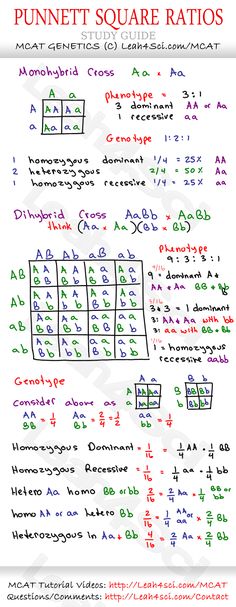 PUNNETT SQUARE RATIOS
STUDY GUIDE
MCAT GENETICS (C) Leah4Sci.com/MCAT
Monohybrid Cross Aa x Aa
A a
A AA Aa
a Aa aa
phenotype = 3:1
3 dominant AA or Aa
1 recessive aa
Genotype 1:2:1
1 homozygous dominant 1/4 = 25% AA
2 heterozygous 2/4 = 50% Aa
1 homozygous recessive 1/4 = 25% aa
Dihybrid Cross AaBb x AaBb
think (Aa x Aa)(Bb x Bb)
AB Ab aB ab
AB
Ab
aB
ab
Phenotype
9:3:3:1
9/16
9 = dominant A+
AA + Aa BB + Bb
3/16
3+3 = 1 dominant
3: AA + Aa with bb
3: aa with BB + Bb
1/16
1 = homozygous
recessive aabb
Genotype
Consider above as
A a
A AA Aa
a Aa aa
B b
B BB Bb
b Bb bb
AA BB = 1/4
Aa Bb = 2/4 = 1/2
aa bb = 1/4
Homozygous Dominant = 1/16 = 1/4 AA · 1/4 BB
Homozygous Recessive = 1/16 = 1/4 aa · 1/4 bb
Hetero Aa homo BB or bb = 2/16 = 2/4 Aa · 1/4 BB or bb
homo AA or aa hetero Bb = 2/16 = 1/4 AA or aa · 2/4 Bb
Heterozygous in Aa + Bb = 4/16 = 2/4 Aa · 2/4 Bb
MCAT Tutorial Videos: http://Leah4sci.com/MCAT
Questions/Comments: http://Leah4sci.com/Contact